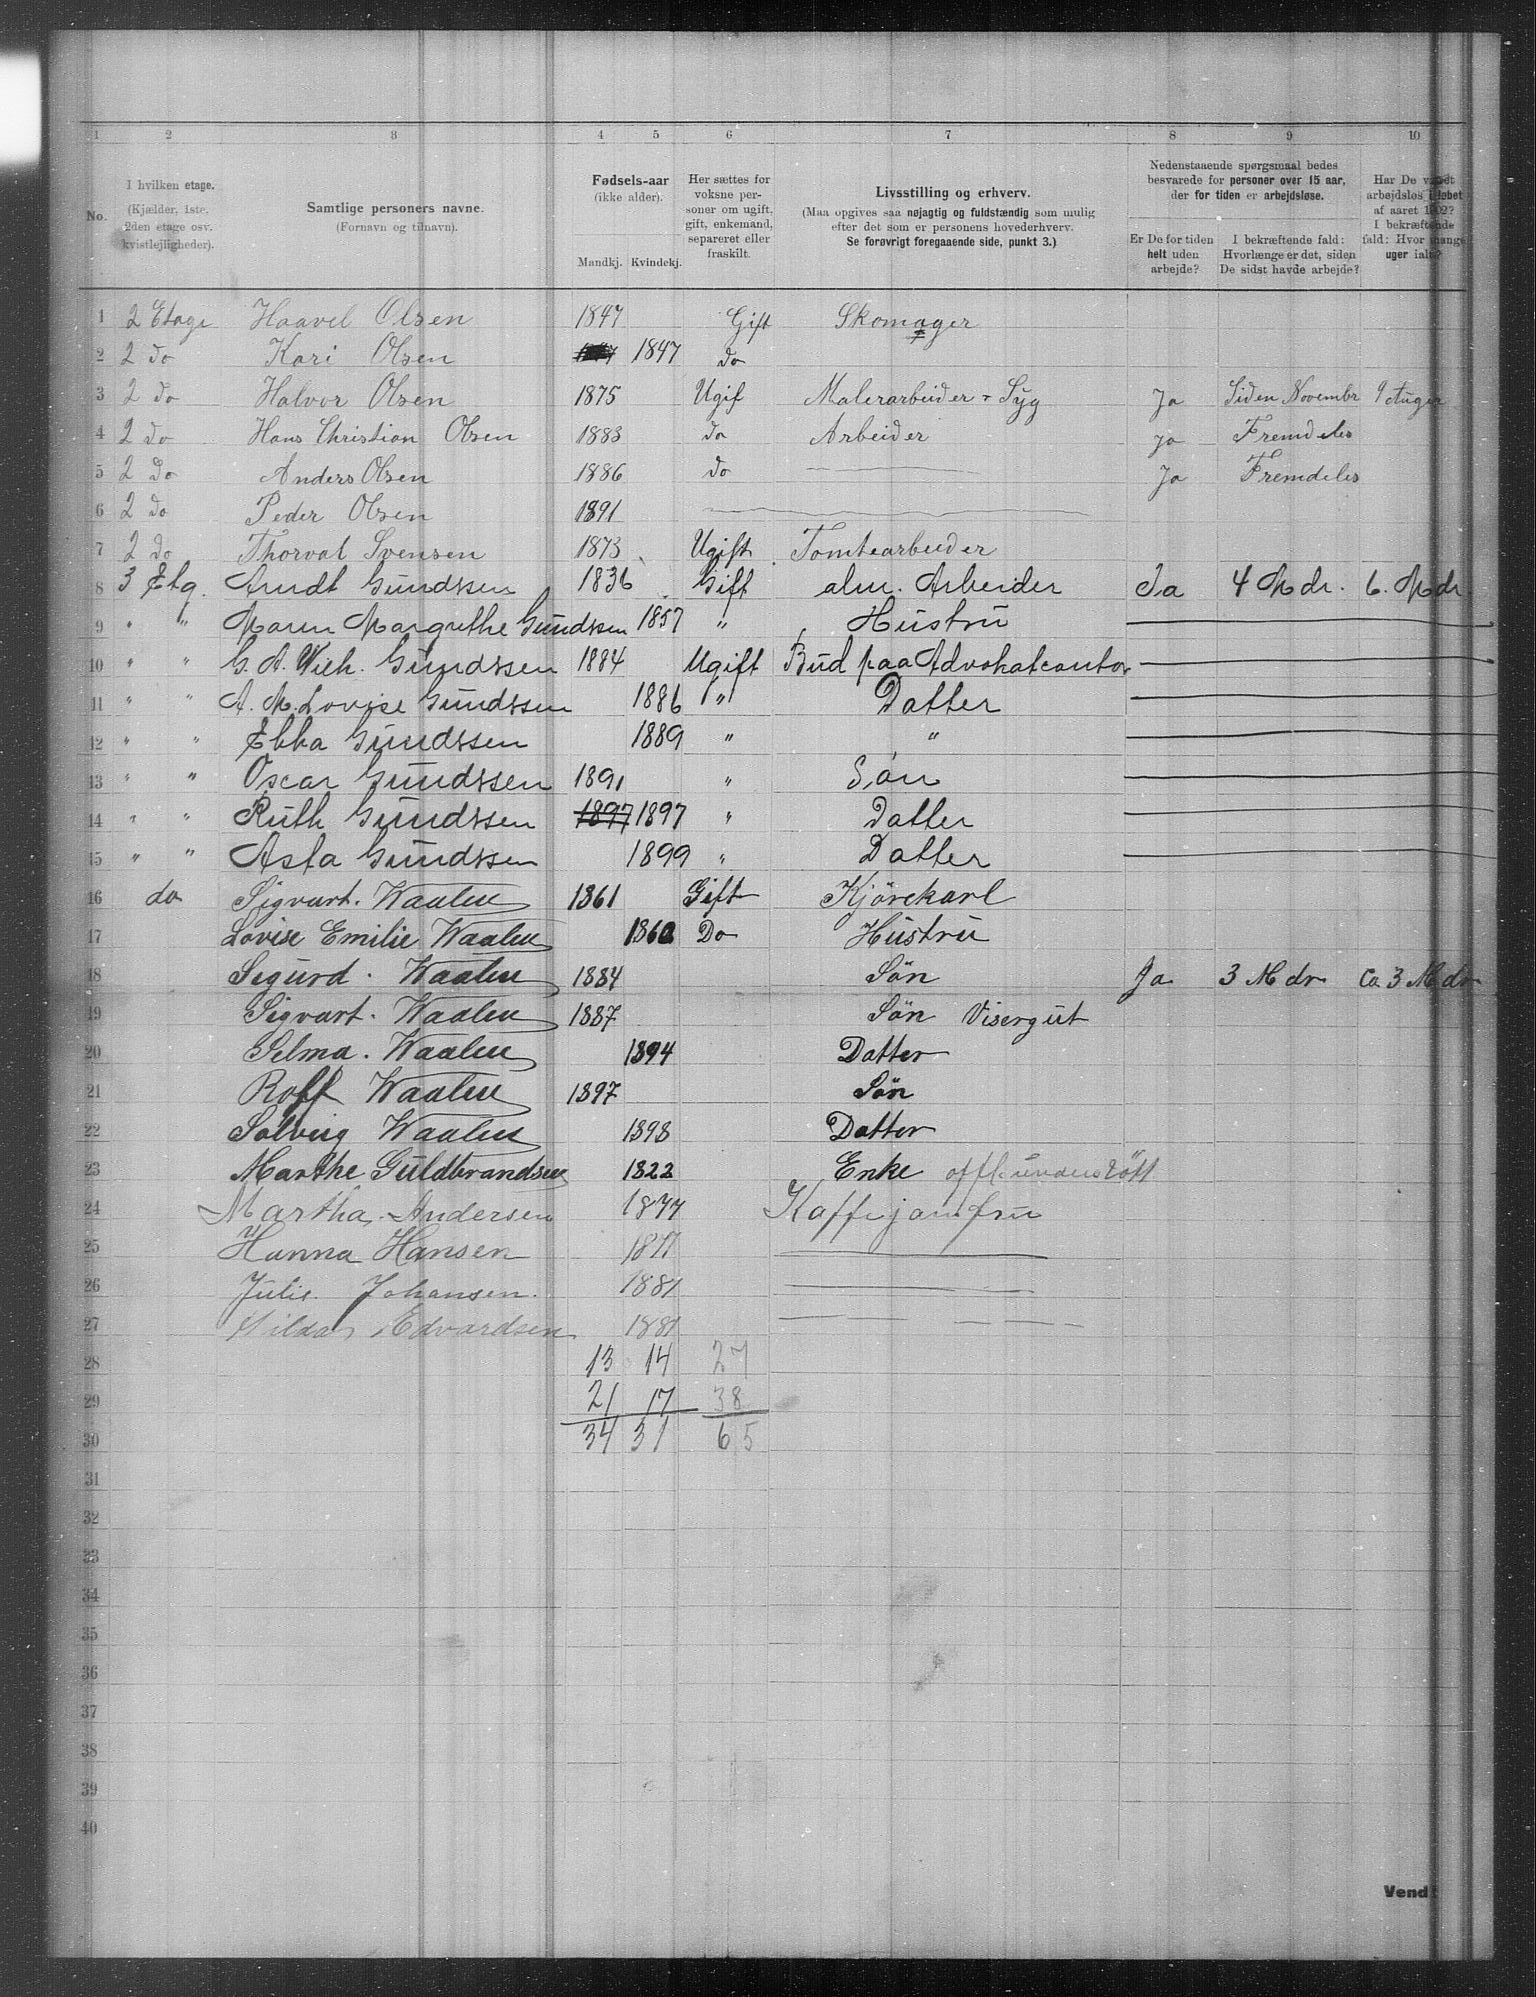 1 2 3 4 5 6 7 8 9 10
No. I hvilken etage. (Kjælder, 1ste, 2den etage osv. kvistlejligheder).
Samtlige personers navne. (Fornavn og tilnavn).
Fødsels-aar (ikke alder). Mandkj. Kvindekj.
Her sættes for voksne personer om ugift, gift, enkemand, separeret eller fraskilt.
Livsstilling og erhverv. (Maa opgives saa nøjagtig og fuldstændig som mulig efter det som er personens hovederhverv. Se forøvrigt foregaaende side, punkt 3.)
Nedenstaaende spørgsmaal bedes besvarede for personer over 15 aar, der for tiden er arbejdsløse.
Er De for tiden helt uden arbejde?
I bekræftende fald: Hvorlænge er det, siden De sidst havde arbejde?
Har De været arbejdsløs i løbet af aaret 1902? I bekræftende fald: Hvor mange uger ialt?
1 2 Etage Haavel Olsen 1847 Gift Skomager
2 2 do Kari Olsen 1847 do
3 2 do Halvor Olsen 1875 Ugif Malerarbeider Syg Ja Siden Novembr
4 2 do Hans Christian Olsen 1883 do Arbeider Ja Fremdeles
5 2 Do Anders Olsen 1886 do Ja Fremdeles
6 2 do Peder Olsen 1891
7 2 do Thorval Svensen 1873 Ugift Tomtearbeider
8 3 Etg. Arndt Gundssen 1836 Gift alm. Arbeider Ja 4 Mdr. 6. Mdr.
9 " " Maren Margrethe Gundssen 1857 " Hustru
10 " " G. A. Wilh. Gundssen 1884 Ugift Bud paa Advokatcontor
11 " " A. M. Lovise Gundssen 1886 " Datter
12 " " Ebba Gundssen 1889 " "
13 " " Oscar Gundssen 1891 " Søn
14 " " Ruth Gundssen 1897 1897 " Datter
15 " " Asta Gundssen 1899 " Datter
16 do Sigvart. Waalen 1861 Gift Kjörekarl
17 Lovise Emilie Waalen 1860 Do Hustru
18 Sigurd. Waalen 1884 Sön Ja 3 Mdr Ca 3 Mdr
19 Sigvart. Waalen 1887 Sön Visergut
20 Selma. Waalen 1894 Datter
21 Rolf Waalen 1897 Sön
22 Solveig Waalen 1898 Datter
23 Marthe Guldbrandsen 1822 Enke offl. understött
24 Martha Andersen 1877 Kaffejomfru
25 Hanna Hansen 1877
26 Julie Johansen. 1881
27 Hilda Edvardsen 1881
28 13 14 27
29 21 17 38
30 34 31 65
31
32
33
34
35
36
37
38
39
40
Vend!